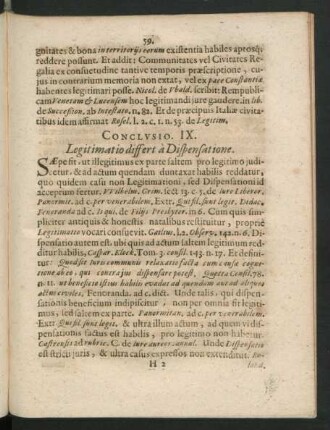 59.
gnitates & bona in territorijs eorum existentia habiles aptosq;
reddere possunt. Et addit: Communitates vel Civitates Re-
galia ex consuetudine tantive temporis præscriptione, cu-
jus in contrarium memoria non extat, vel ex pace Constantiæ
habentes legitimari posse. Nicol. de Vbald. scribit: Rempubli-
cam Venetam & Lucensem hoc legitimandi jure gaudere. in lib.
de Succession. ab Intestato, n. 82. Et de præcipuis Italiæ civita-
tibus idem affirmat Rosel. l. 2. c. 1. n. 53. de Legitim.
CONCLVSIO. IX.
Legitimatio differt à Dispensatione.
SÆpe fit, ut illegitimus ex parte saltem pro legitimo judi-
cetur, & ad actum quendam duntaxat habilis reddatur,
quo quidem casu non Legitimationi, sed Dispensationi id
acceptum fertur.
Panormit. ad c. per venerabilem, Extr. Qui fil. sint legit.
Fenoranda ad c. Is qui, de Filijs Presbyter. n. 6. Cum quis sim-
pliciter antiquis & honestis natalibus restituitur, propriè
Legitimatio vocari consuevit. Gailius, l. 2. Observ. 142. n. 6. Di-
spensatio autem est, ubi quis ad actum saltem legitimum red-
ditur habilis, Caspar. Klock, Tom. 3. consil. 143. n. 17. Et defini-
tur: Quod sit juris communis relaxatio facta cum causæ cogni-
tione ab eo, qui contra jus dispensare potest.
n. 11. ut beneficio istius habilis evadat ad quendam aut ad aliquos
actus civiles, Fenoranda. ad c. dict. Unde talis, qui dispen-
sationis beneficium indipiscitur, non per omnia fit legiti-
mus, sed saltem ex parte. Panormitan. ad c. per venerabilem.
Extr. Qui fil. sint legit. & ultra illum actum, ad quem vi di-
spensationis factus est habilis, pro legitimo non habetur.
Castrensis ad rubric. C. de jure aureor. annul. Unde Dispensatio
est stricti juris, & ultra casus expressos non extenditur.
H 2